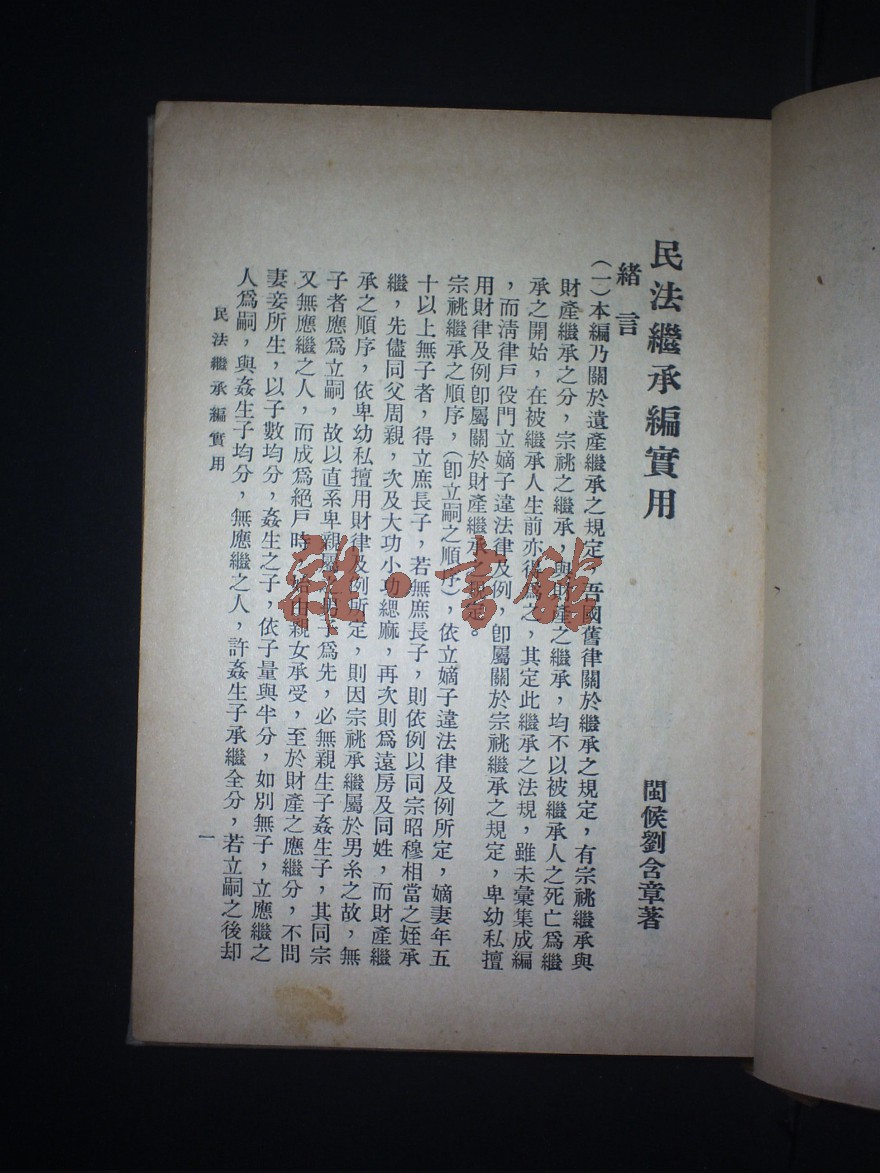 民法繼承編實用
閩侯劉含章著
緒言
(一)本編乃關於遺產繼承之規定,吾國舊律關於繼承之規定,有宗祧繼承與
財產繼承之分,宗祧之繼承,與財產之繼承,均不以被繼承人之死亡為繼
承之開始,在被繼承人生前亦得為之,其定此繼承之法規,雖未彙集成編
,而清律戶役門立嫡子違法律及例,卽屬關於宗祧繼承之規定,卑幼私擅
用財律及例卽屬關於財產繼承之規定。
宗祧繼承之順序,(卽立嗣之順序),依立嫡子違法律及例所定,嫡妻年五
十以上無子者,得立庶長子,若無庶長子,則依例以同宗昭穆相當之姪承
繼,先儘同父周親,次及大功小功緦麻,再次則為遠房及同姓,而財產繼
承之順序,依卑幼私擅用財律及例所定,則因宗祧承繼屬於男系之故,無
子者應為立嗣,故以直系卑親屬之男子為先,必無親生子姦生子,其同宗
又無應繼之人,而成為絕戶時,始由親女承受,至於財產之應繼分,不問
妻妾所生,以子數均分,姦生之子,依子量與半分,如別無子,立應繼之
人為嗣,與姦生子均分,無應繼之人,許姦生子承繼全分,若立嗣之後却
民法繼承編實用
一
雜·書館